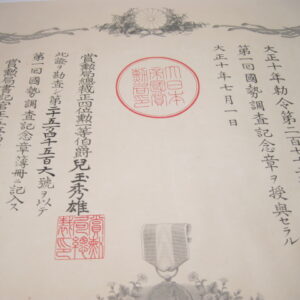 大正十年勅令第二百
第一回國勢調査記念章ヲ授與セラル
大正十年七月一日
大日本
帝國賞
勲局印
賞勲局總裁正四位勲二等伯爵兒玉秀雄
賞勲
局總
裁印
此證ヲ勘査シ第二十五万四千五百六號ヲ以テ
第一回國勢調査記念章簿冊ニ記入ス
賞勲局書記官正五位